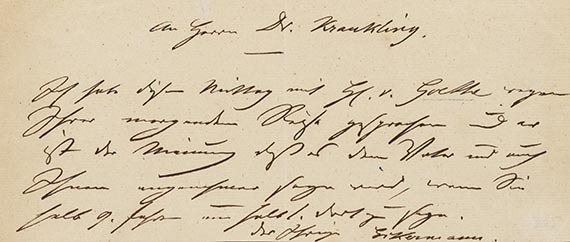 An Herrn Dr. Kraukling.
Ich habe diesen Mittag mit H. v. Goethe wegen
Ihrer morgenden Reise gesprochen und er
ist der Meinung daß es dem Vater und auch
Ihnen angenehmer seyn wird, wenn Sie
halb 9. fahren um halb 1. dort zu seyn.
der Ihrige Eckermann.